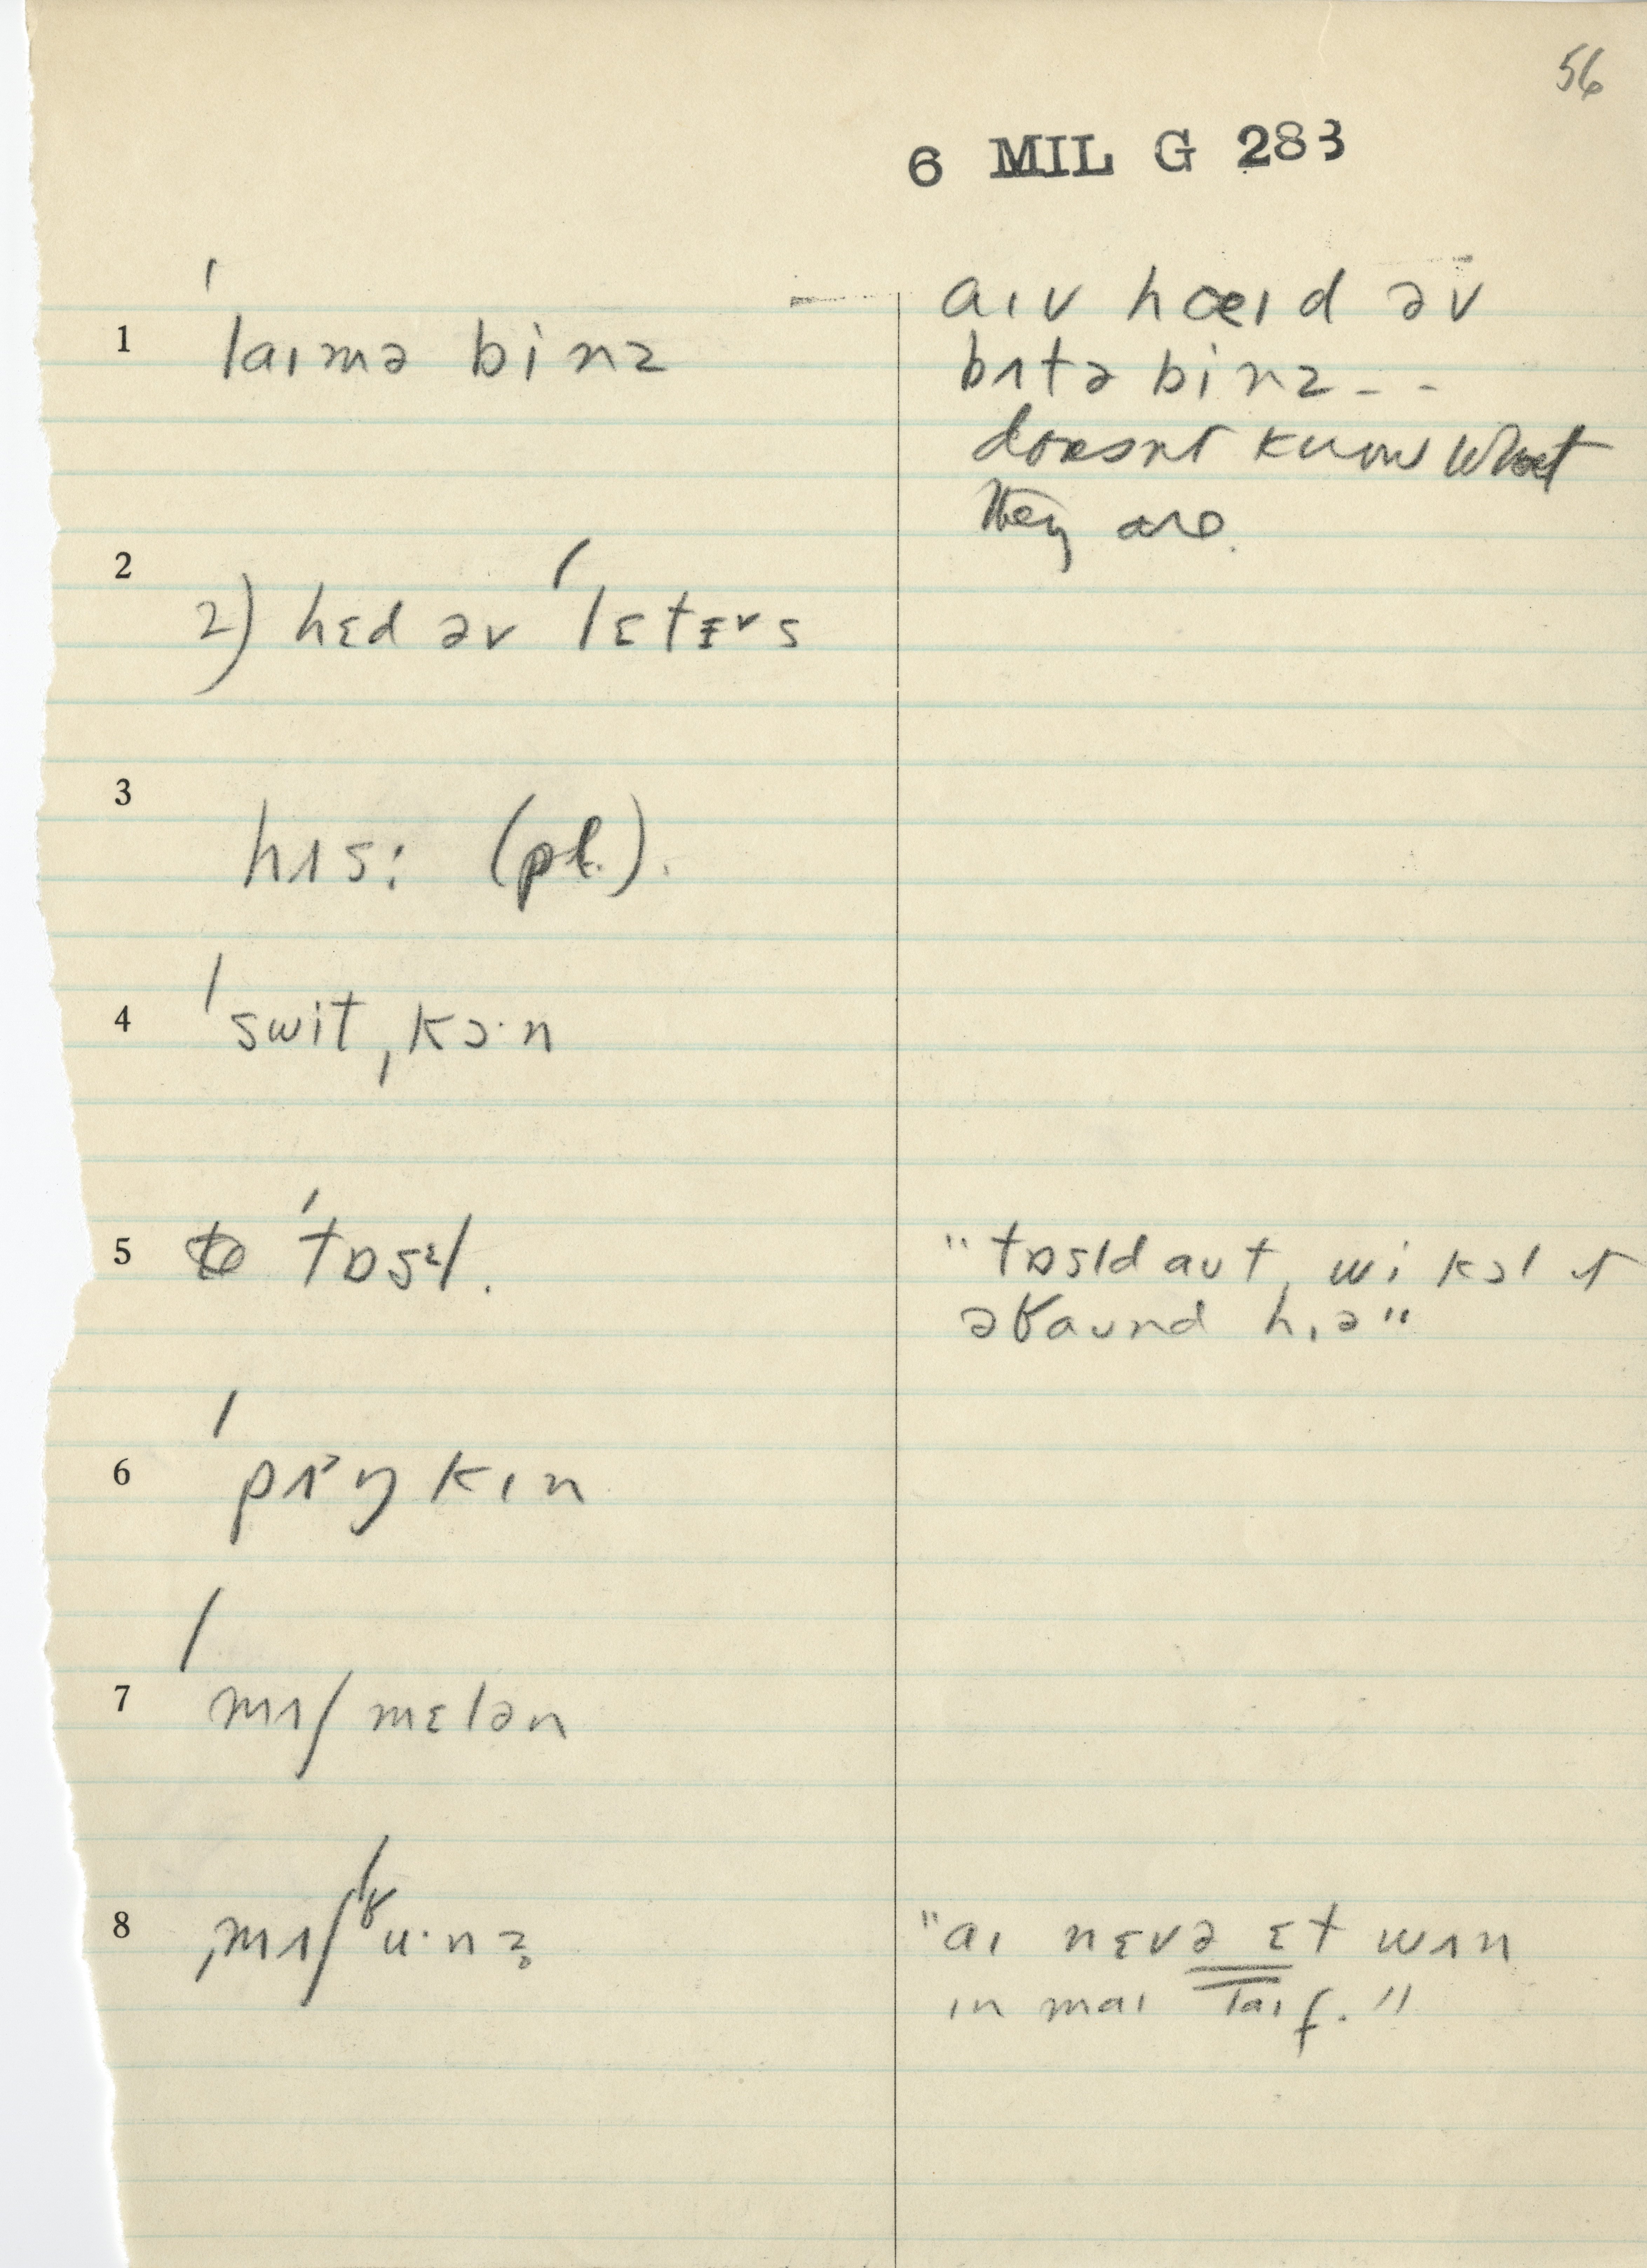 56
6 MIL G 283
1 ˈlaɪmə binz
aɪv hɶɪd əv
bʌtə binz - -
doesnt know what
they are.
2
2) hɛd əv ˈlɛtɚs
3
hʌs: (pl.).
4 ˈswitˌkɔ·n
5 ˈtɒsɫ.
"tɒsld aut, wi kɔl ɪt
əʁaund hɪə"
6 ˈpʌ̃ŋkɪn
7 ˈmʌʃmɛlən
8 ˌmʌʃˈʁu·nz̥
"aɪ nɛvə ɛt wʌn
ɪn maɪ laɪf."